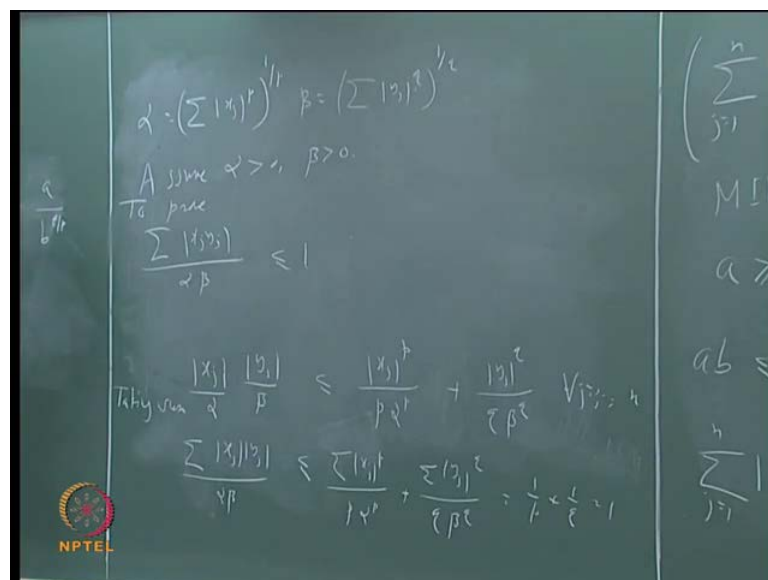 a / b^{q/p}
α = (∑ |x_j|^p)^{1/p} β = (∑ |y_j|^q)^{1/q}
Assume α > 0, β > 0.
To prove
∑ |x_j y_j| / αβ ≤ 1
|x_j| / α |y_j| / β ≤ |x_j|^p / p α^p + |y_j|^q / q β^q ∀ j=1,…, n
Taking sum
∑ |x_j| |y_j| / αβ ≤ ∑ |x_j|^p / p α^p + ∑ |y_j|^q / q β^q = 1/p + 1/q = 1
( ∑_{j=1}^{n}
a ≥
ab ≤
∑_{j=1}^{n} |
NPTEL